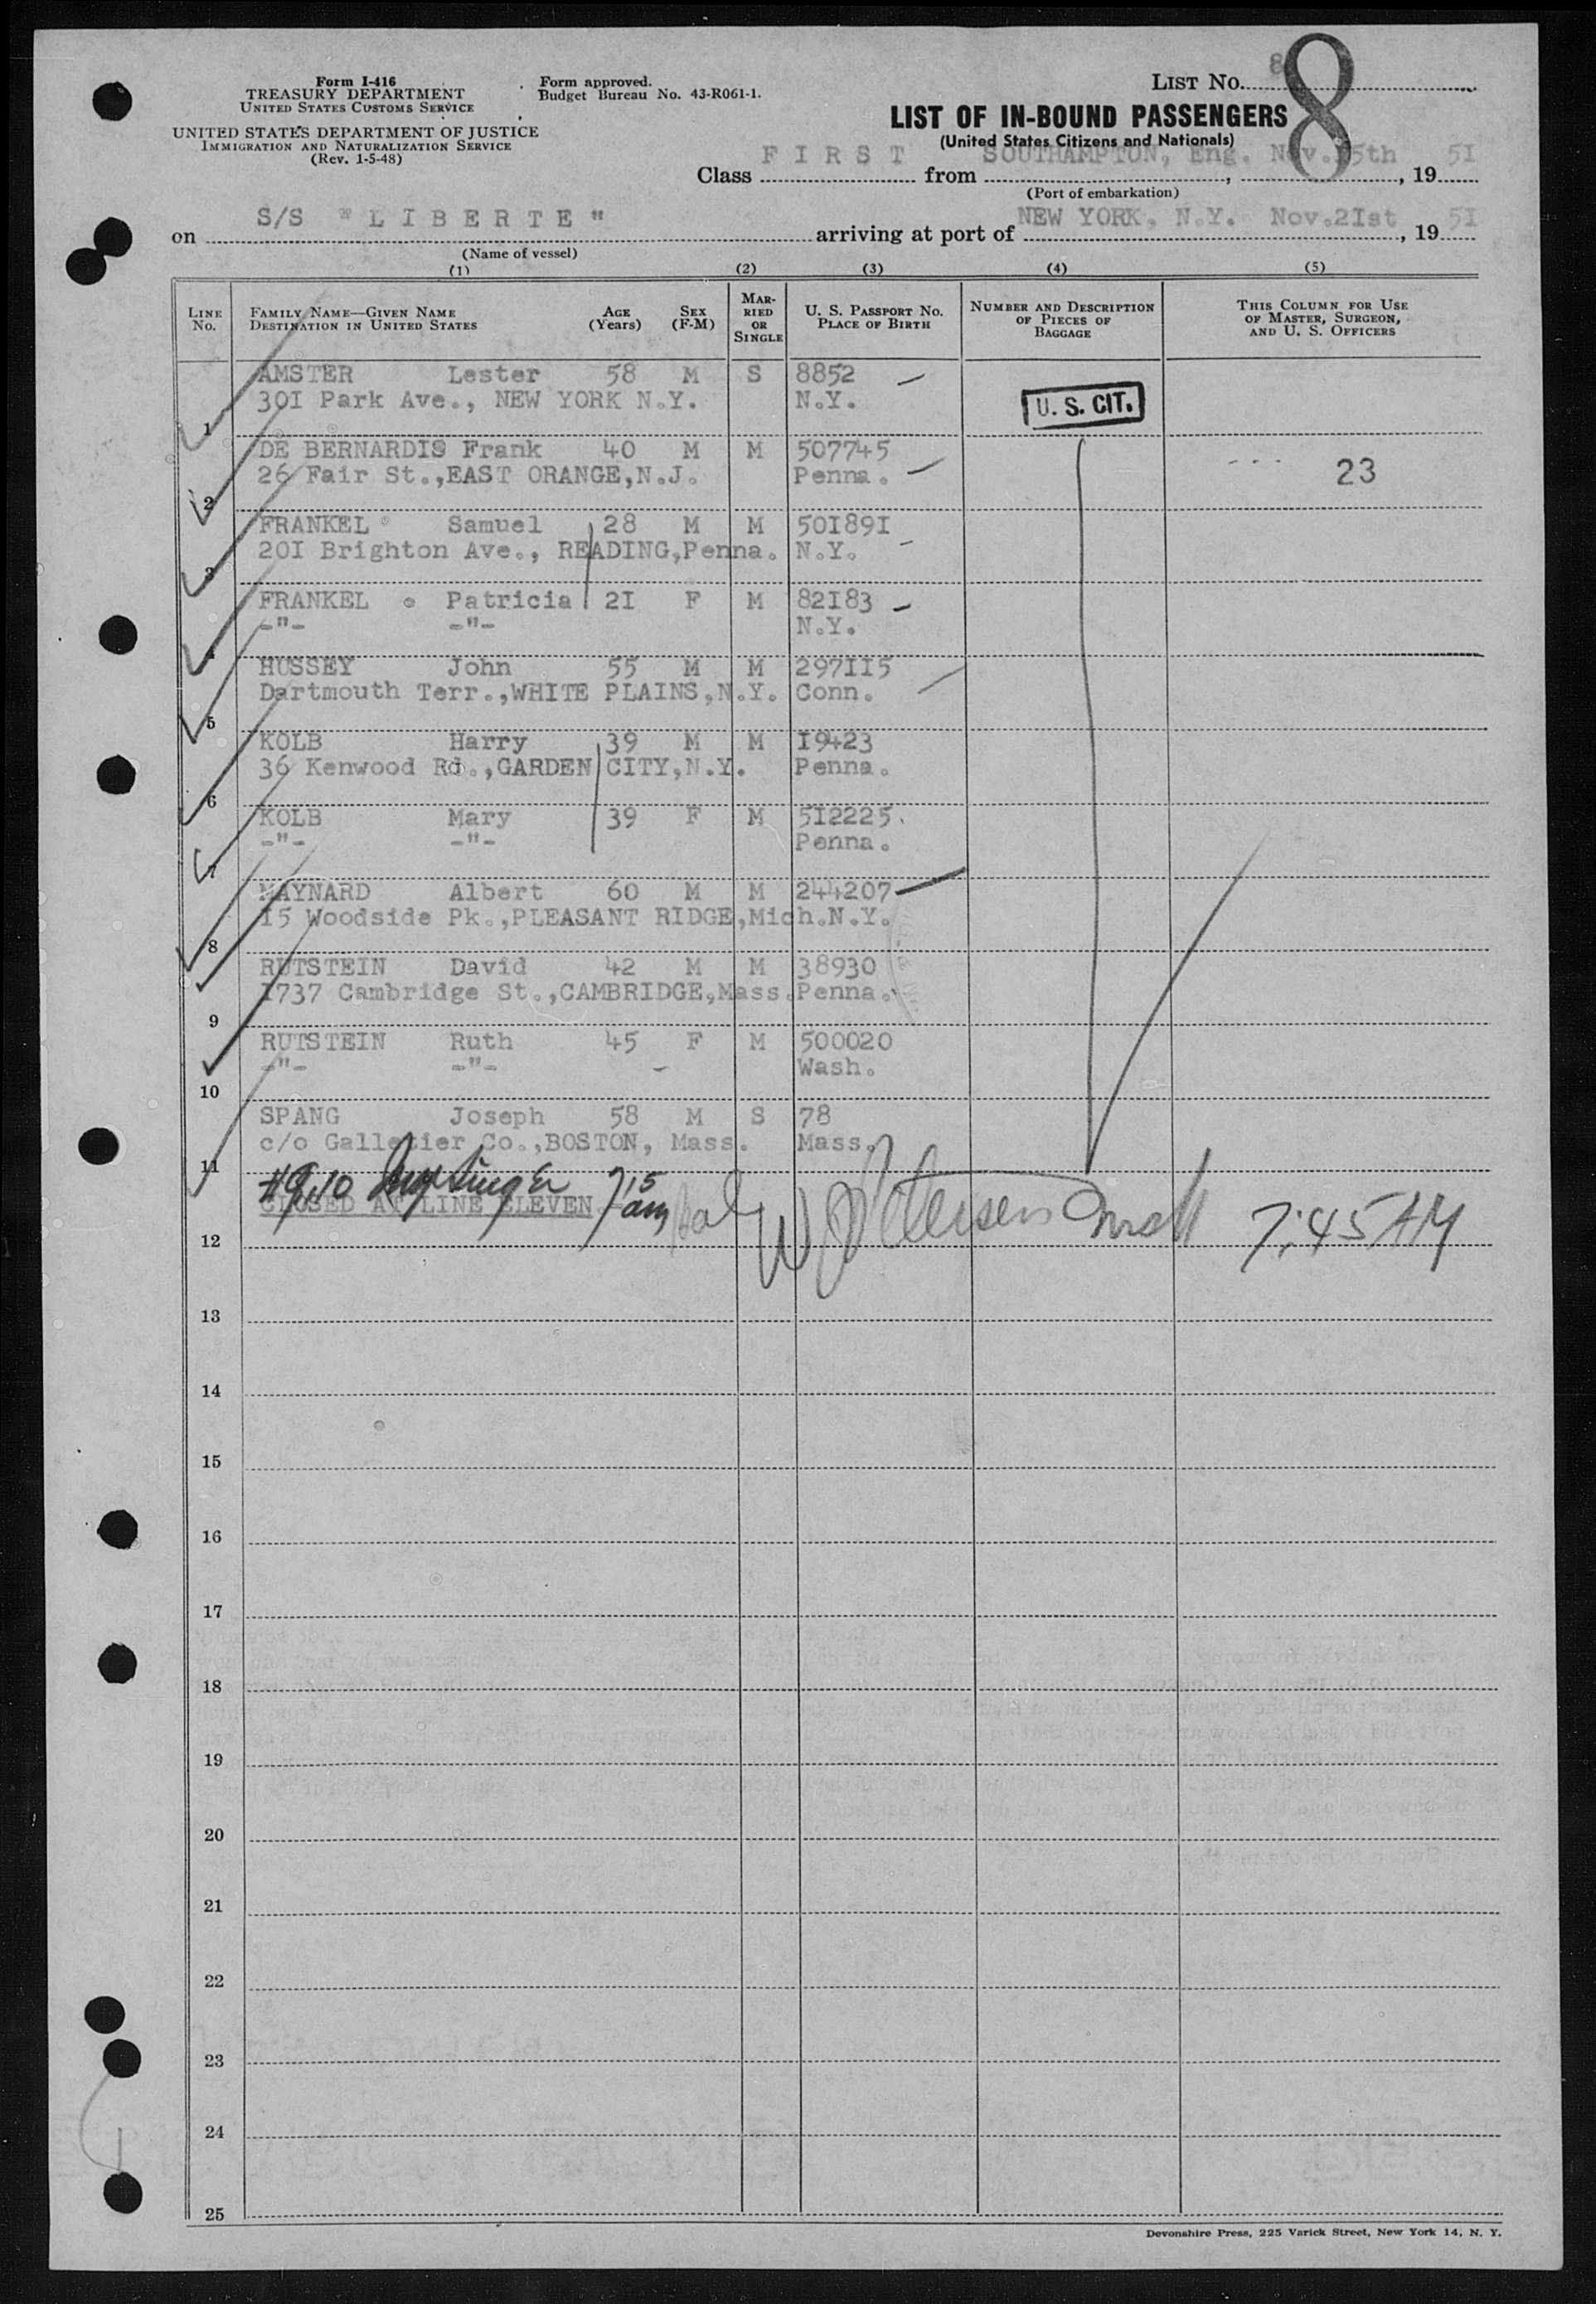 Form I-416
TREASURY DEPARTMENT
UNITED STATES CUSTOMS SERVICE
UNITED STATES DEPARTMENT OF JUSTICE
IMMIGRATION AND NATURALIZATION SERVICE
(Rev. 1-5-48)
Form approved.
Budget Bureau No. 43-R061-1.
LIST NO. 8
8
LIST OF IN-BOUND PASSENGERS
(United States Citizens and Nationals)
Class FIRST from SOUTHAMPTON, Eng. Nov. 5th, 19 5I
(Port of embarkation)
on S/S "LIBERTE" arriving at port of NEW YORK, N.Y. Nov.2Ist, 19 5I
(Name of vessel)
(1) (2) (3) (4) (5)
LINE NO.
FAMILY NAME—GIVEN NAME
DESTINATION IN UNITED STATES
AGE (Years)
SEX (F-M)
MARRIED OR SINGLE
U. S. PASSPORT NO.
PLACE OF BIRTH
NUMBER AND DESCRIPTION OF PIECES OF BAGGAGE
THIS COLUMN FOR USE OF MASTER, SURGEON, AND U. S. OFFICERS
AMSTER Lester 58 M S 8852
1 30I Park Ave., NEW YORK N.Y. N.Y. U. S. CIT.
DE BERNARDIS Frank 40 M M 507745
2 26 Fair St.,EAST ORANGE,N.J. Penna. 23
FRANKEL Samuel 28 M M 50I89I
3 20I Brighton Ave., READING,Penna. N.Y.
FRANKEL Patricia 2I F M 82I83
4 -"- -"- N.Y.
HUSSEY John 55 M M 297II5
5 Dartmouth Terr.,WHITE PLAINS,N.Y. Conn.
KOLB Harry 39 M M I9423
6 36 Kenwood Rd.,GARDEN CITY,N.Y. Penna.
KOLB Mary 39 F M 5I2225
7 -"- -"- Penna.
MAYNARD Albert 60 M M 244207
8 I5 Woodside Pk.,PLEASANT RIDGE,Mich. N.Y.
RUTSTEIN David 42 M M 38930
9 I737 Cambridge St.,CAMBRIDGE,Mass. Penna.
RUTSTEIN Ruth 45 F M 500020
10 -"- -"- Wash.
SPANG Joseph 58 M S 78
11 c/o Galletier Co.,BOSTON, Mass. Mass.
#9,10 7 15 am
CLOSED AT LINE ELEVEN
7:45 AM
12
13
14
15
16
17
18
19
20
21
22
23
24
25
Devonshire Press, 225 Varick Street, New York 14, N. Y.